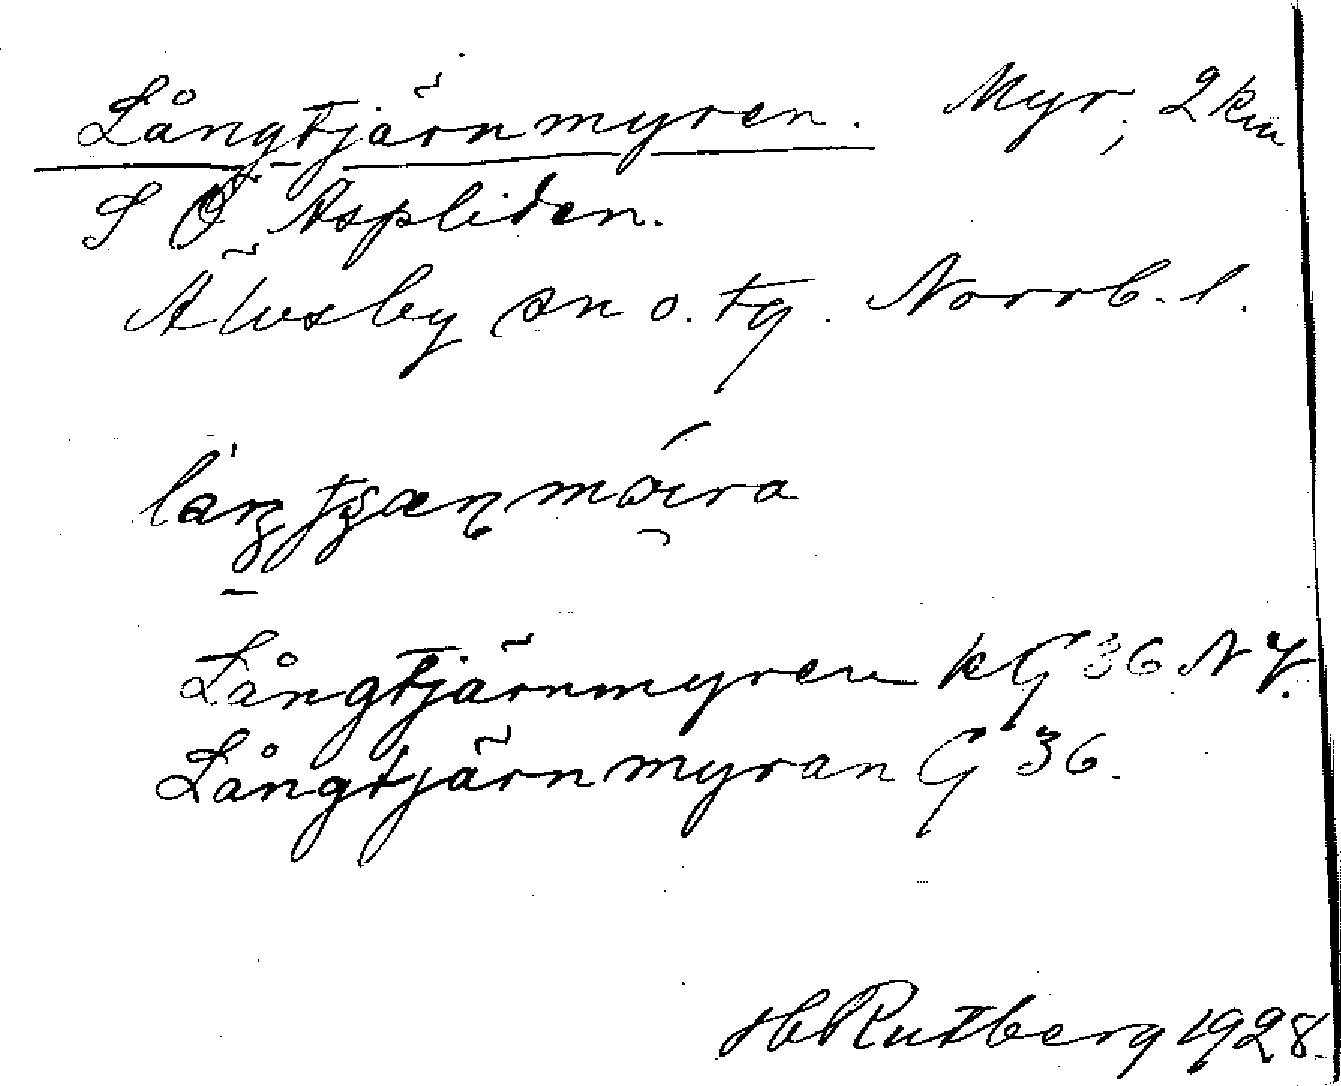 Långtjärnmyren. Myr, 2 km
S Ö Aspliden.
Älvsby sn o. tg. Norrb. l.
Långtjärnmyren k G 36 NV.
Långtjärnmyran G 36.
H Rutberg 1928.